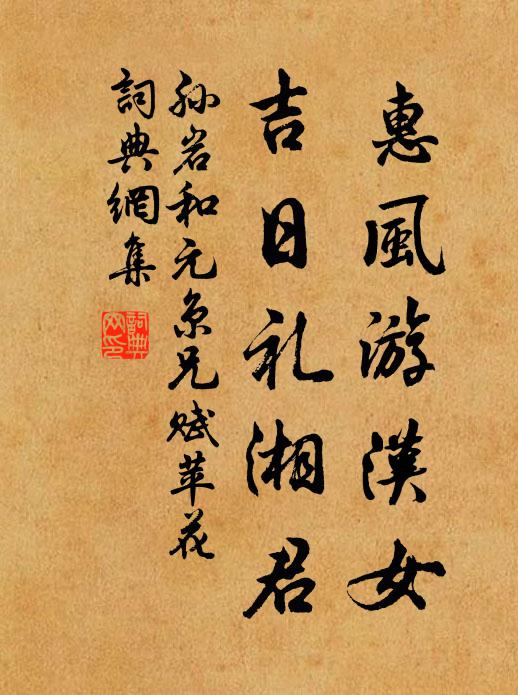 惠風游漢女
吉日礼湘君
孙岩和元京兄赋苹花
詞典網集
詞典網印